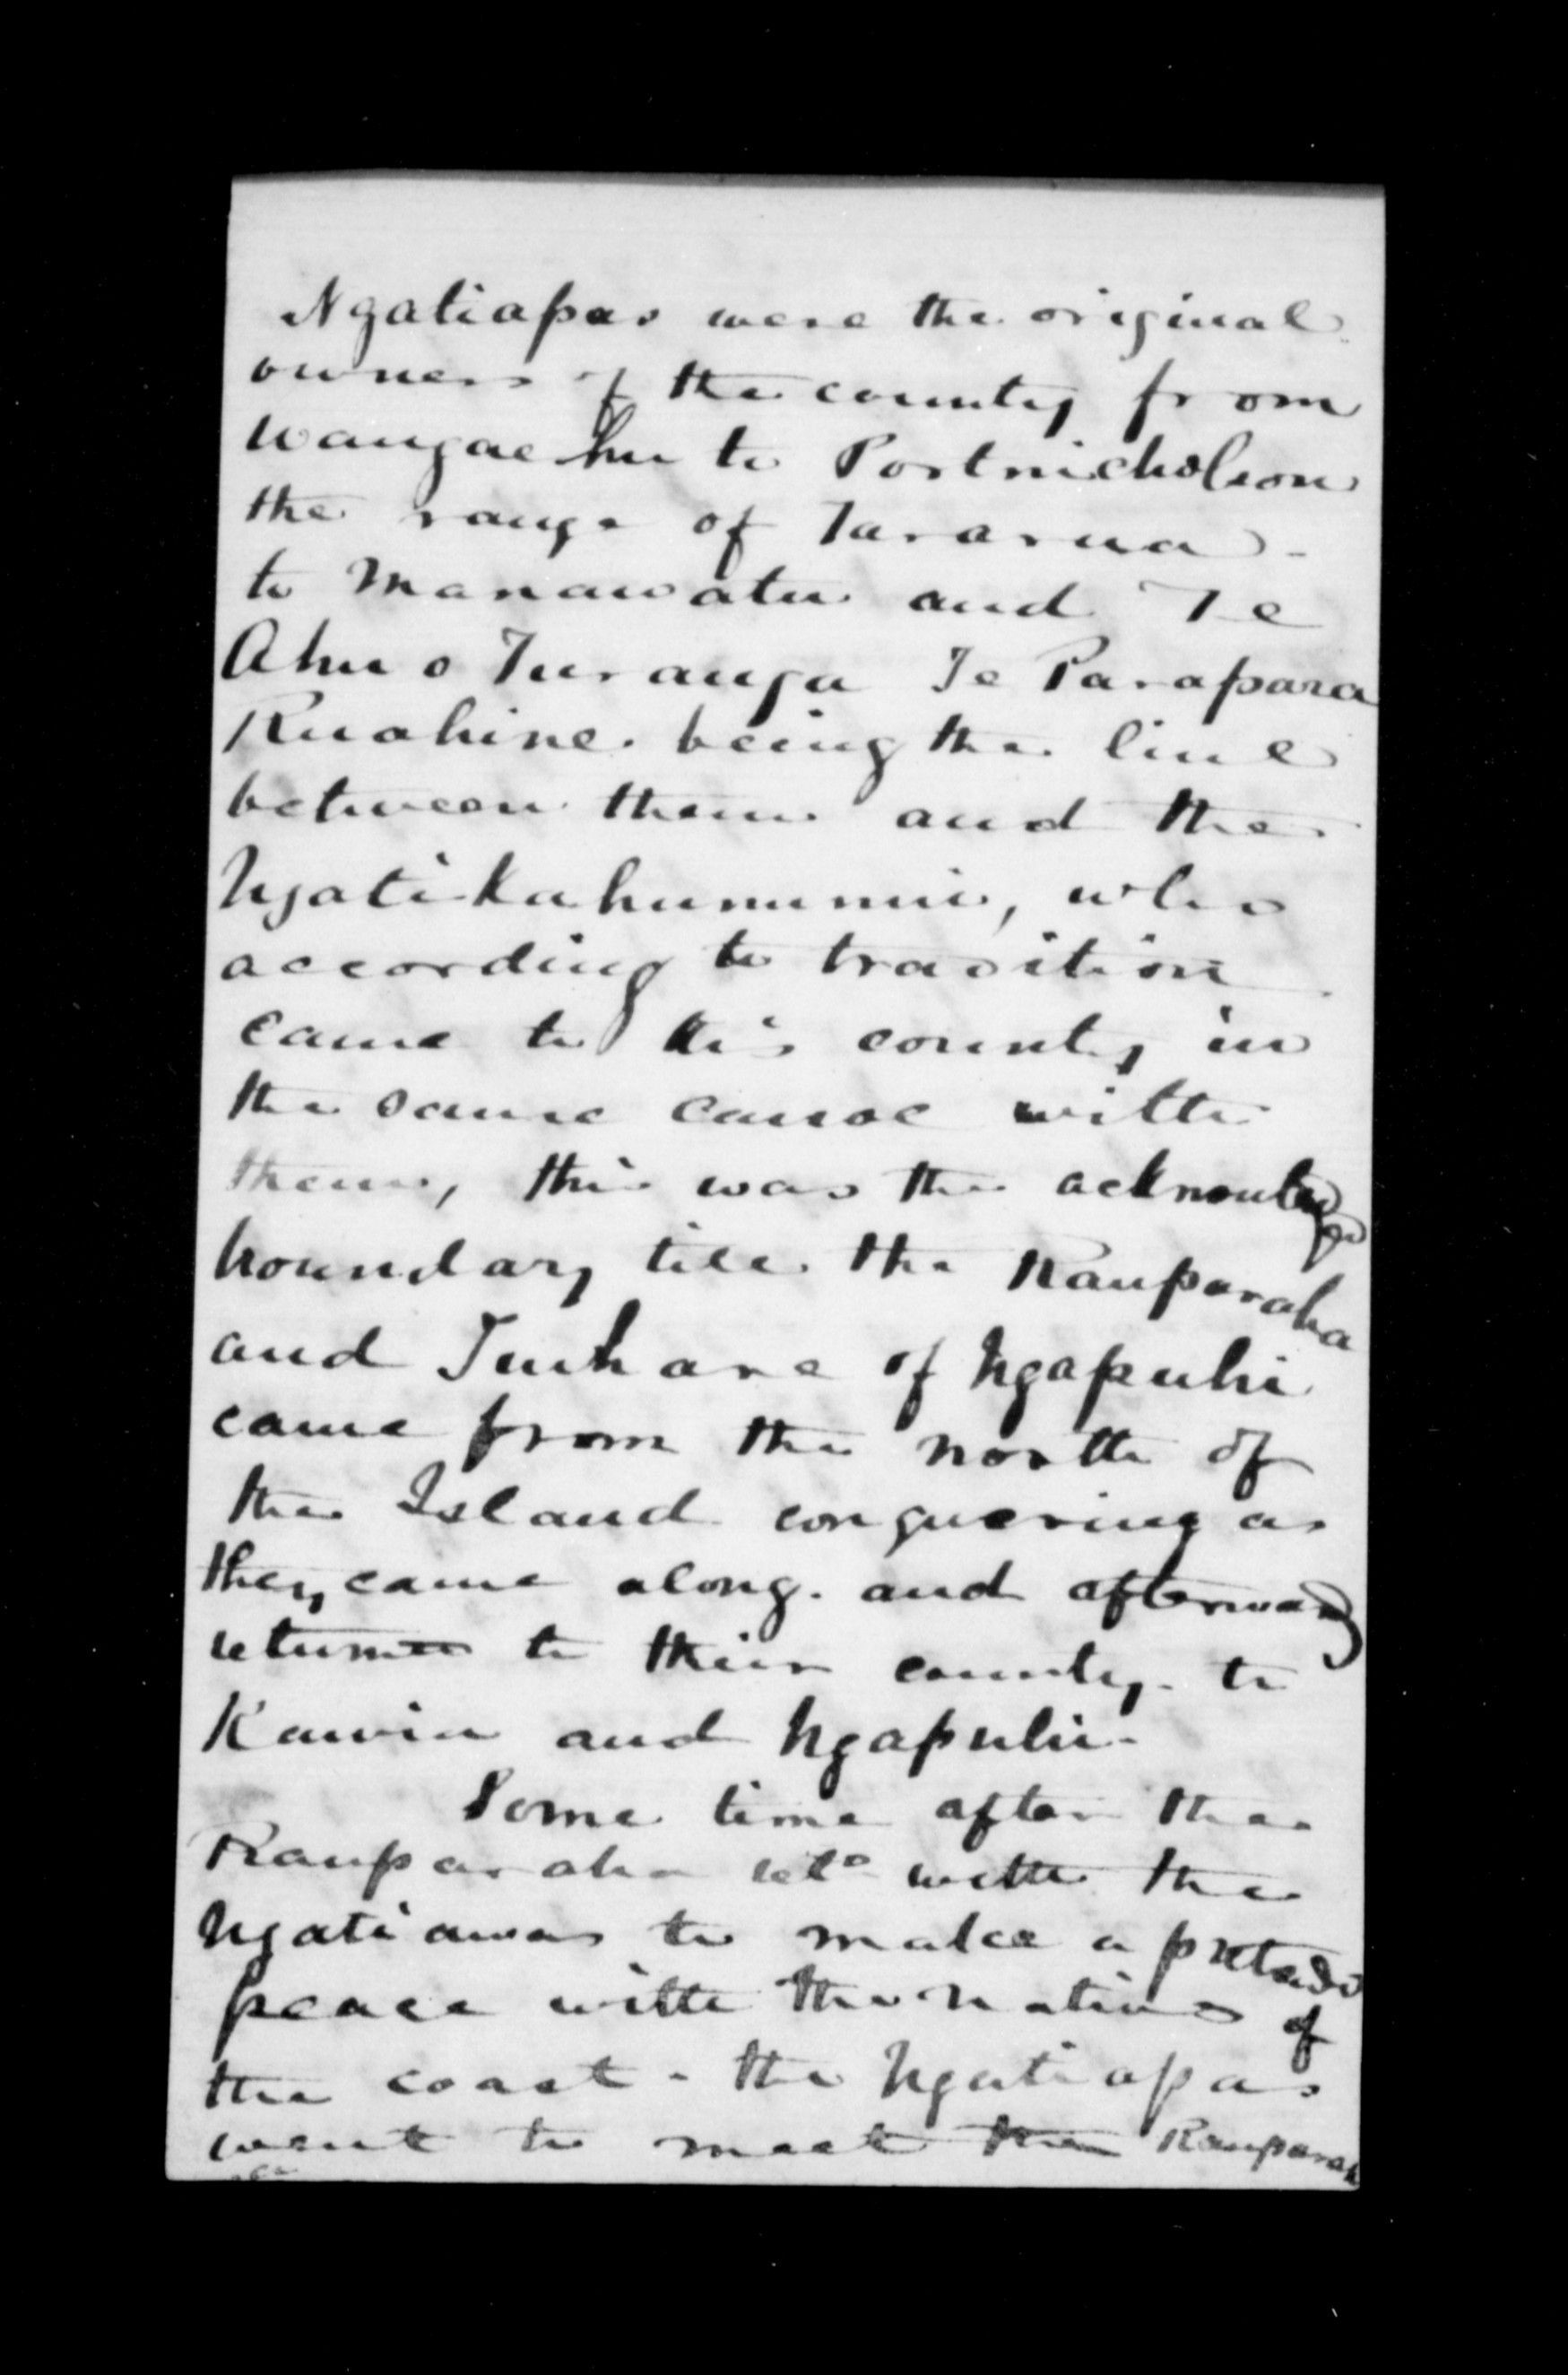 Ngatiapas were the original
owners of the country from
Wangaehu to Portnicholson
the range of Tararua -
to Manawatu and Te
Ahu o Turanga Te Parapara
Ruahine. being the line
between them and the
Ngatikahununui, who
according to tradition
came to this country in
the same canoe with
them, this was the acknowledged
boundary till the Rauparaha
and Tuuhare of Ngapuhi
came from the north of
the Island conquering as
they came along. and afterwards
returned to their country. to
Kawia and Ngapuhi.
Some time after the
Rauparaha retd with the
Ngatiawas to make a pretended
peace with the natives of
the coast - the Ngatiapas
went to meet the Rauparaha